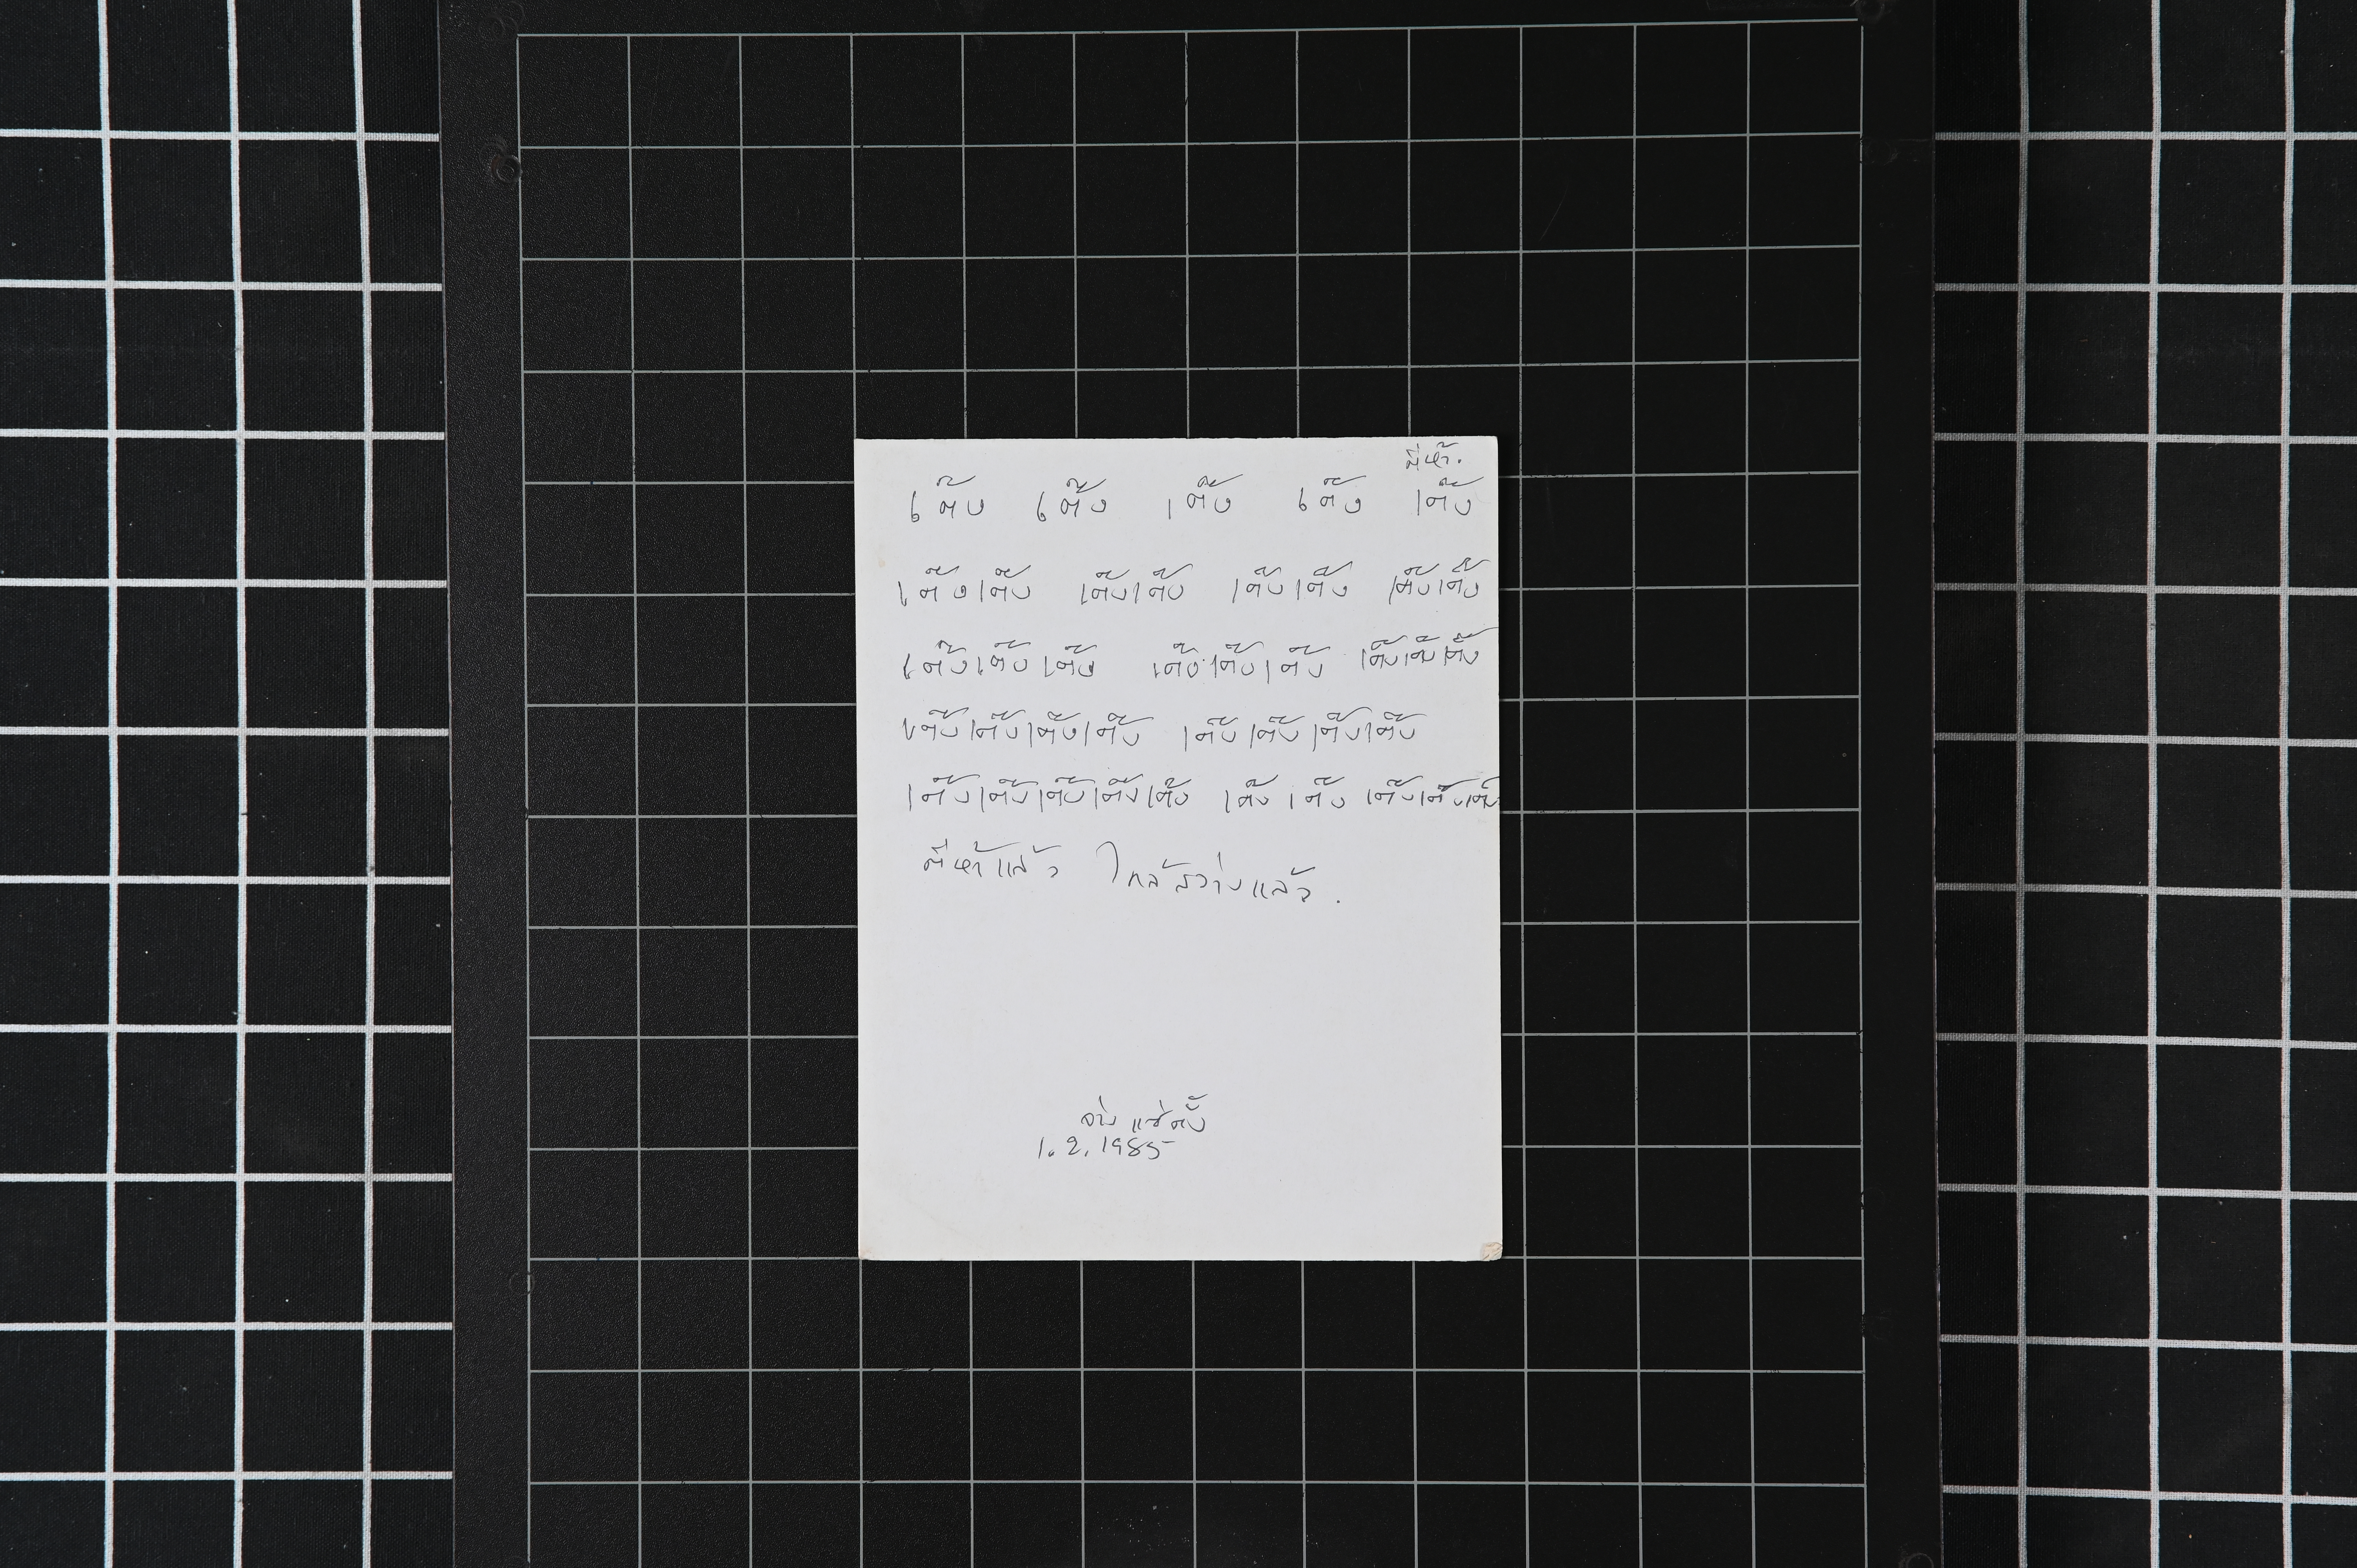 ตีห้า.
เต๊ง เต๊ง เต๊ง เต๊ง เต๊ง
เต๊งเต๊ง เต๊งเต๊ง เต๊งเต๊ง เต๊งเต๊ง
เต๊งเต๊งเต๊ง เต๊งเต๊งเต๊ง เต๊งเต๊งเต๊ง
เต๊งเต๊งเต๊งเต๊ง เต๊งเต๊งเต๊งเต๊ง
เต๊งเต๊งเต๊งเต๊งเต๊ง เต๊ง เต๊ง เต๊งเต๊งเต๊ง
ตีห้าแล้ว ใกล้สว่างแล้ว.
จ่าง แซ่ตั้ง
1.2.1985